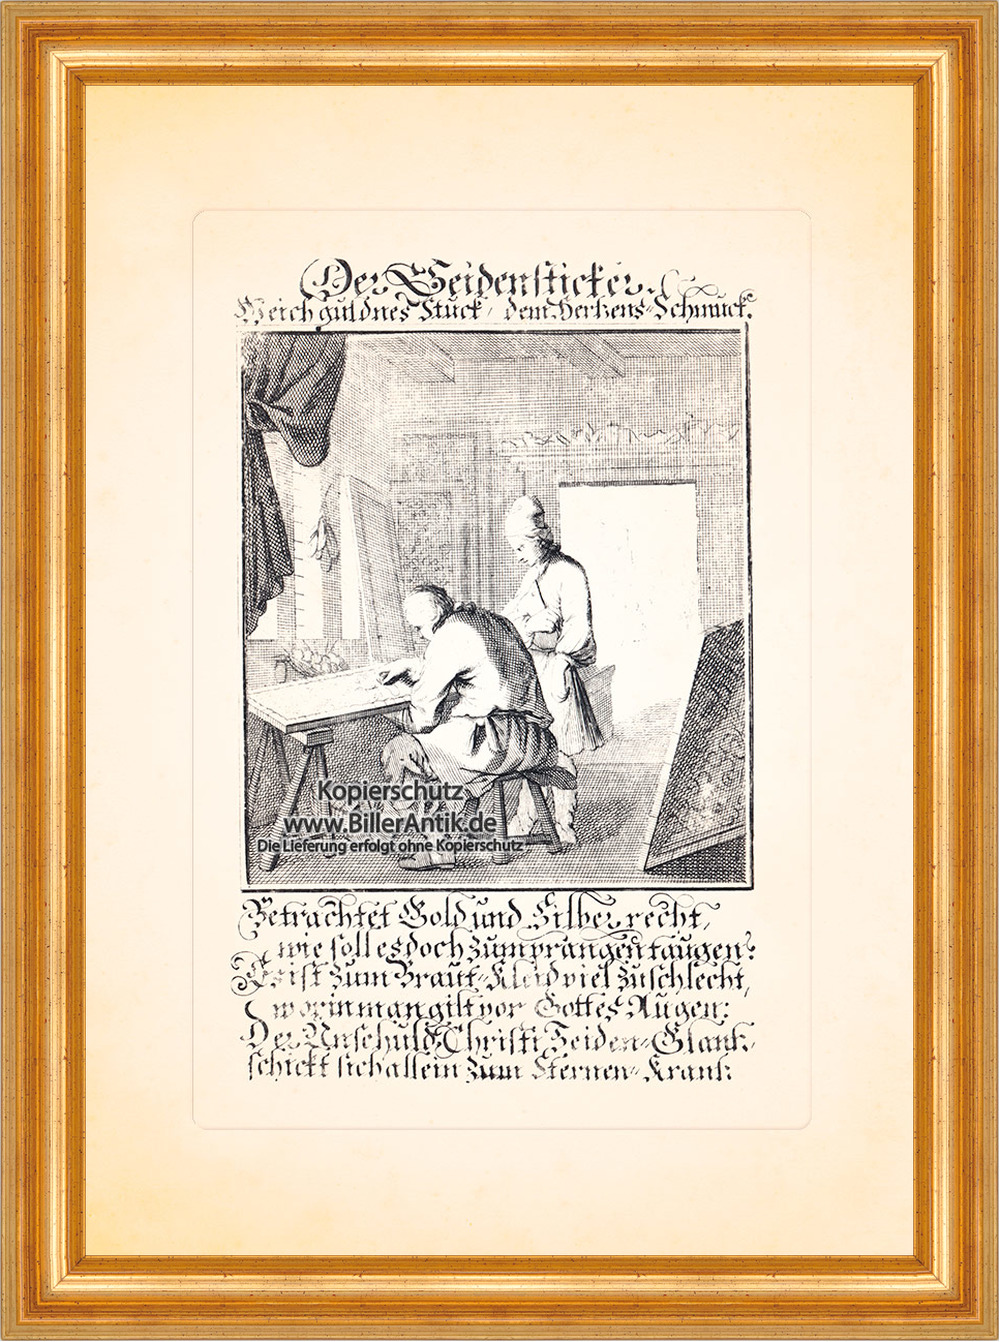 Der Seidensticker.
Weich guldnes Stuck, dem Hertzens-Schmuck.
Kopierschutz
www.BillerAntik.de
Die Lieferung erfolgt ohne Kopierschutz
Betrachtet Gold und Silber recht,
wie soll es doch zum prangen taugen?
Es ist zum Braut-Kleid viel zu schlecht,
worin man gilt vor Gottes Augen:
Der Unschuld Christi Seiden-Glantz,
schickt sich allein zum Sternen-Krantz